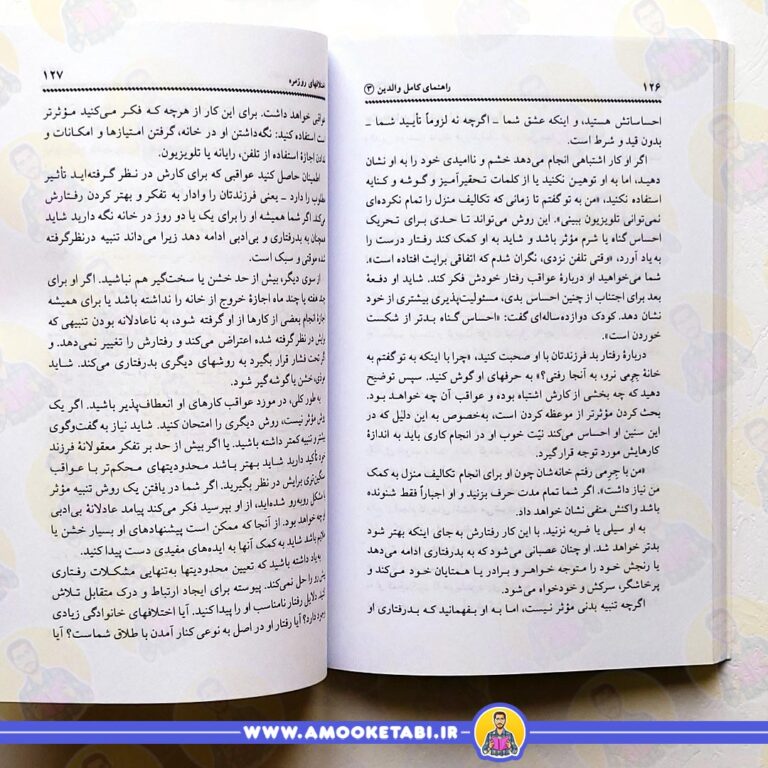 ۱۲۶
راهنمای کامل والدین (۳)
احساساتش هستید، و اینکه عشق شما ـ اگرچه نه لزوماً تأیید شما ـ
بدون قید و شرط است.
اگر او کار اشتباهی انجام می‌دهد خشم و ناامیدی خود را به او نشان
دهید، اما به او توهین نکنید یا از کلمات تحقیرآمیز و گوشه و کنایه
استفاده نکنید، «من به تو گفتم تا زمانی که تکالیف منزل را تمام نکرده‌ای
نمی‌توانی تلویزیون ببینی». این روش می‌تواند تا حدی برای تحریک
احساس گناه یا شرم مؤثر باشد و شاید به او کمک کند رفتار درست را
به یاد آورد، «وقتی تلفن نزدی، نگران شدم که اتفاقی برایت افتاده است».
شما می‌خواهید او دربارهٔ عواقب رفتار خودش فکر کند. شاید او دفعهٔ
بعد برای اجتناب از چنین احساس بدی، مسئولیت‌پذیری بیشتری از خود
نشان دهد. کودک دوازده‌ساله‌ای گفت: «احساس گناه بدتر از شکست
خوردن است».
دربارهٔ رفتار بد فرزندتان با او صحبت کنید، «چرا با اینکه به تو گفتم به
خانهٔ جرمی نرو، به آنجا رفتی؟» به حرفهای او گوش کنید. سپس توضیح
دهید که چه بخشی از کارش اشتباه بوده و عواقب آن چه خواهد بود.
بحث کردن مؤثرتر از موعظه کردن است، به‌خصوص به این دلیل که در
این سنین او احساس می‌کند نیّت خوب او در انجام کاری باید به اندازهٔ
کارهایش مورد توجه قرار گیرد.
«من با جرمی رفتم خانه‌شان چون او برای انجام تکالیف منزل به کمک
من نیاز داشت». اگر شما تمام مدت حرف بزنید و او اجباراً فقط شنونده
باشد واکنش منفی نشان خواهد داد.
به او سیلی یا ضربه نزنید. با این کار رفتارش به جای اینکه بهتر شود
بدتر خواهد شد. او چنان عصبانی می‌شود که به بدرفتاری ادامه می‌دهد
یا رنجش خود را متوجه خواهر و برادر یا همتایان خود می‌کند و
پرخاشگر، سرکش و خودخواه می‌شود.
اگرچه تنبیه بدنی مؤثر نیست، اما به او بفهمانید که بدرفتاری او
۱۲۷
اختلافهای روزمره
عواقبی خواهد داشت. برای این کار از هرچه که فکر می‌کنید مؤثرتر
است استفاده کنید: نگه‌داشتن او در خانه، گرفتن امتیازها و امکانات و
ندادن اجازهٔ استفاده از تلفن، رایانه یا تلویزیون.
اطمینان حاصل کنید عواقبی که برای کارش در نظر گرفته‌اید تأثیر
مطلوب را دارد ـ یعنی فرزندتان را وادار به تفکر و بهتر کردن رفتارش
می‌کند. اگر شما همیشه او را برای یک یا دو روز در خانه نگه دارید شاید
همچنان به بدرفتاری و بی‌ادبی ادامه دهد زیرا می‌داند تنبیه درنظرگرفته
شده موقتی و سبک است.
از سوی دیگر، بیش از حد خشن یا سخت‌گیر هم نباشید. اگر او برای
چند هفته یا چند ماه اجازهٔ خروج از خانه را نداشته باشد یا برای همیشه
اجازهٔ انجام بعضی از کارها از او گرفته شود، به ناعادلانه بودن تنبیهی که
برایش در نظر گرفته شده اعتراض می‌کند و رفتارش را تغییر نمی‌دهد. و
اگر تحت فشار قرار بگیرد به روشهای دیگری بدرفتاری می‌کند. شاید
موذی، خشن یا گوشه‌گیر شود.
به طور کلی، در مورد عواقب کارهای او انعطاف‌پذیر باشید. اگر یک
روش مؤثر نیست، روش دیگری را امتحان کنید. شاید نیاز به گفت‌وگوی
بیشتر و تنبیه کمتر داشته باشید. یا اگر بیش از حد بر تفکر معقولانهٔ فرزند
خود تأکید دارید شاید بهتر باشد محدودیتهای محکم‌تر با عواقب
سنگین‌تری برایش در نظر بگیرید. اگر شما در یافتن یک روش تنبیه مؤثر
با مشکل روبه‌رو شده‌اید، از او بپرسید فکر می‌کند پیامد عادلانهٔ بی‌ادبی
او چه خواهد بود. از آنجا که ممکن است پیشنهادهای او بسیار خشن یا
ملایم باشد شاید به کمک آنها به ایده‌های مفیدی دست پیدا کنید.
به یاد داشته باشید که تعیین محدودیتها به‌تنهایی مشکلات رفتاری
را حل نمی‌کند. پیوسته برای ایجاد ارتباط و درک متقابل تلاش
کنید. دلایل رفتار نامناسب او را پیدا کنید. آیا اختلافهای خانوادگی زیادی
وجود دارد؟ آیا رفتار او در اصل به نوعی کنار آمدن با طلاق شماست؟ آیا
WWW.AMOOKETABI.IR